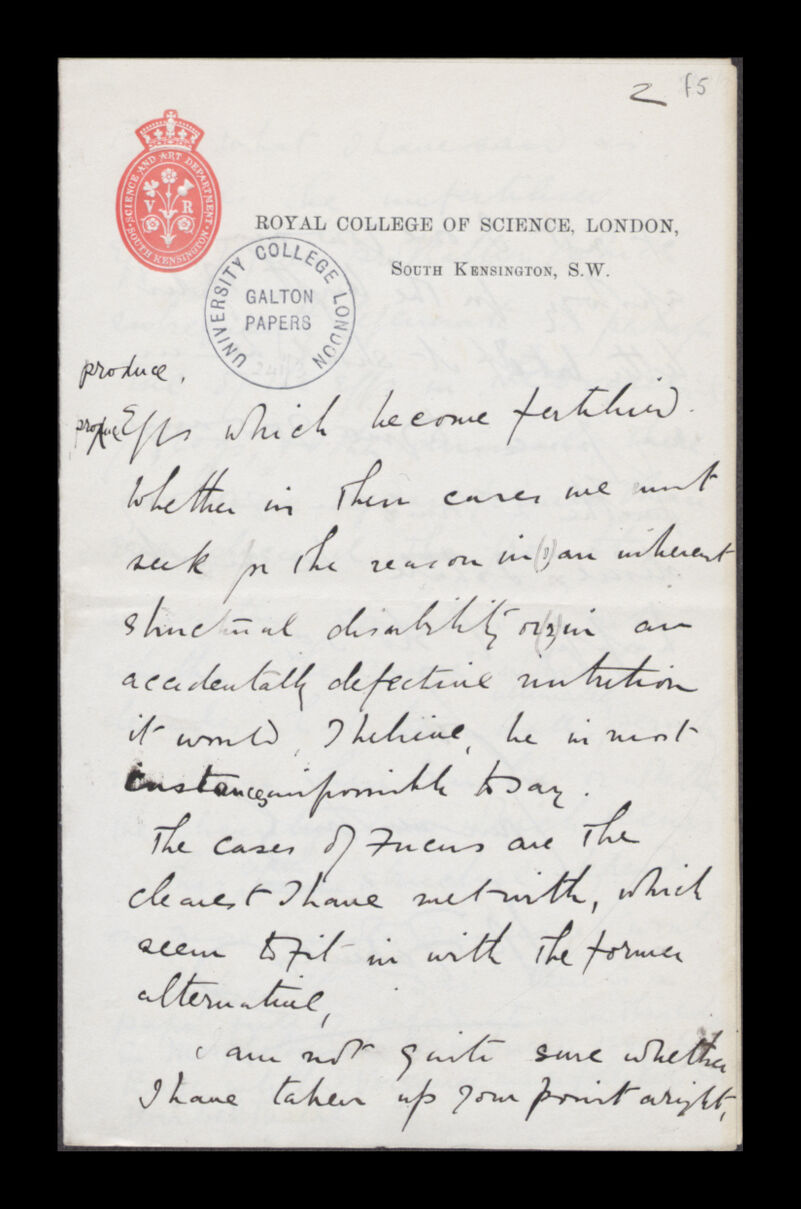 2 f5
SCIENCE AND ART DEPARTMENT
V R
SOUTH KENSINGTON
ROYAL COLLEGE OF SCIENCE, LONDON,
SOUTH KENSINGTON, S.W.
UNIVERSITY COLLEGE LONDON
GALTON
PAPERS
produce.
Eggs which become fertilised.
Whether in these cases we must
seek for the reason in (1) an inherent
structural disability or (2) in an
accidentally defective nutrition
it would, I believe, be in most
instances impossible to say.
The cases of Fucus are the
clearest I have met with, which
seem to fit in with the former
alternative,
I am not quite sure whether
I have taken up your point aright,